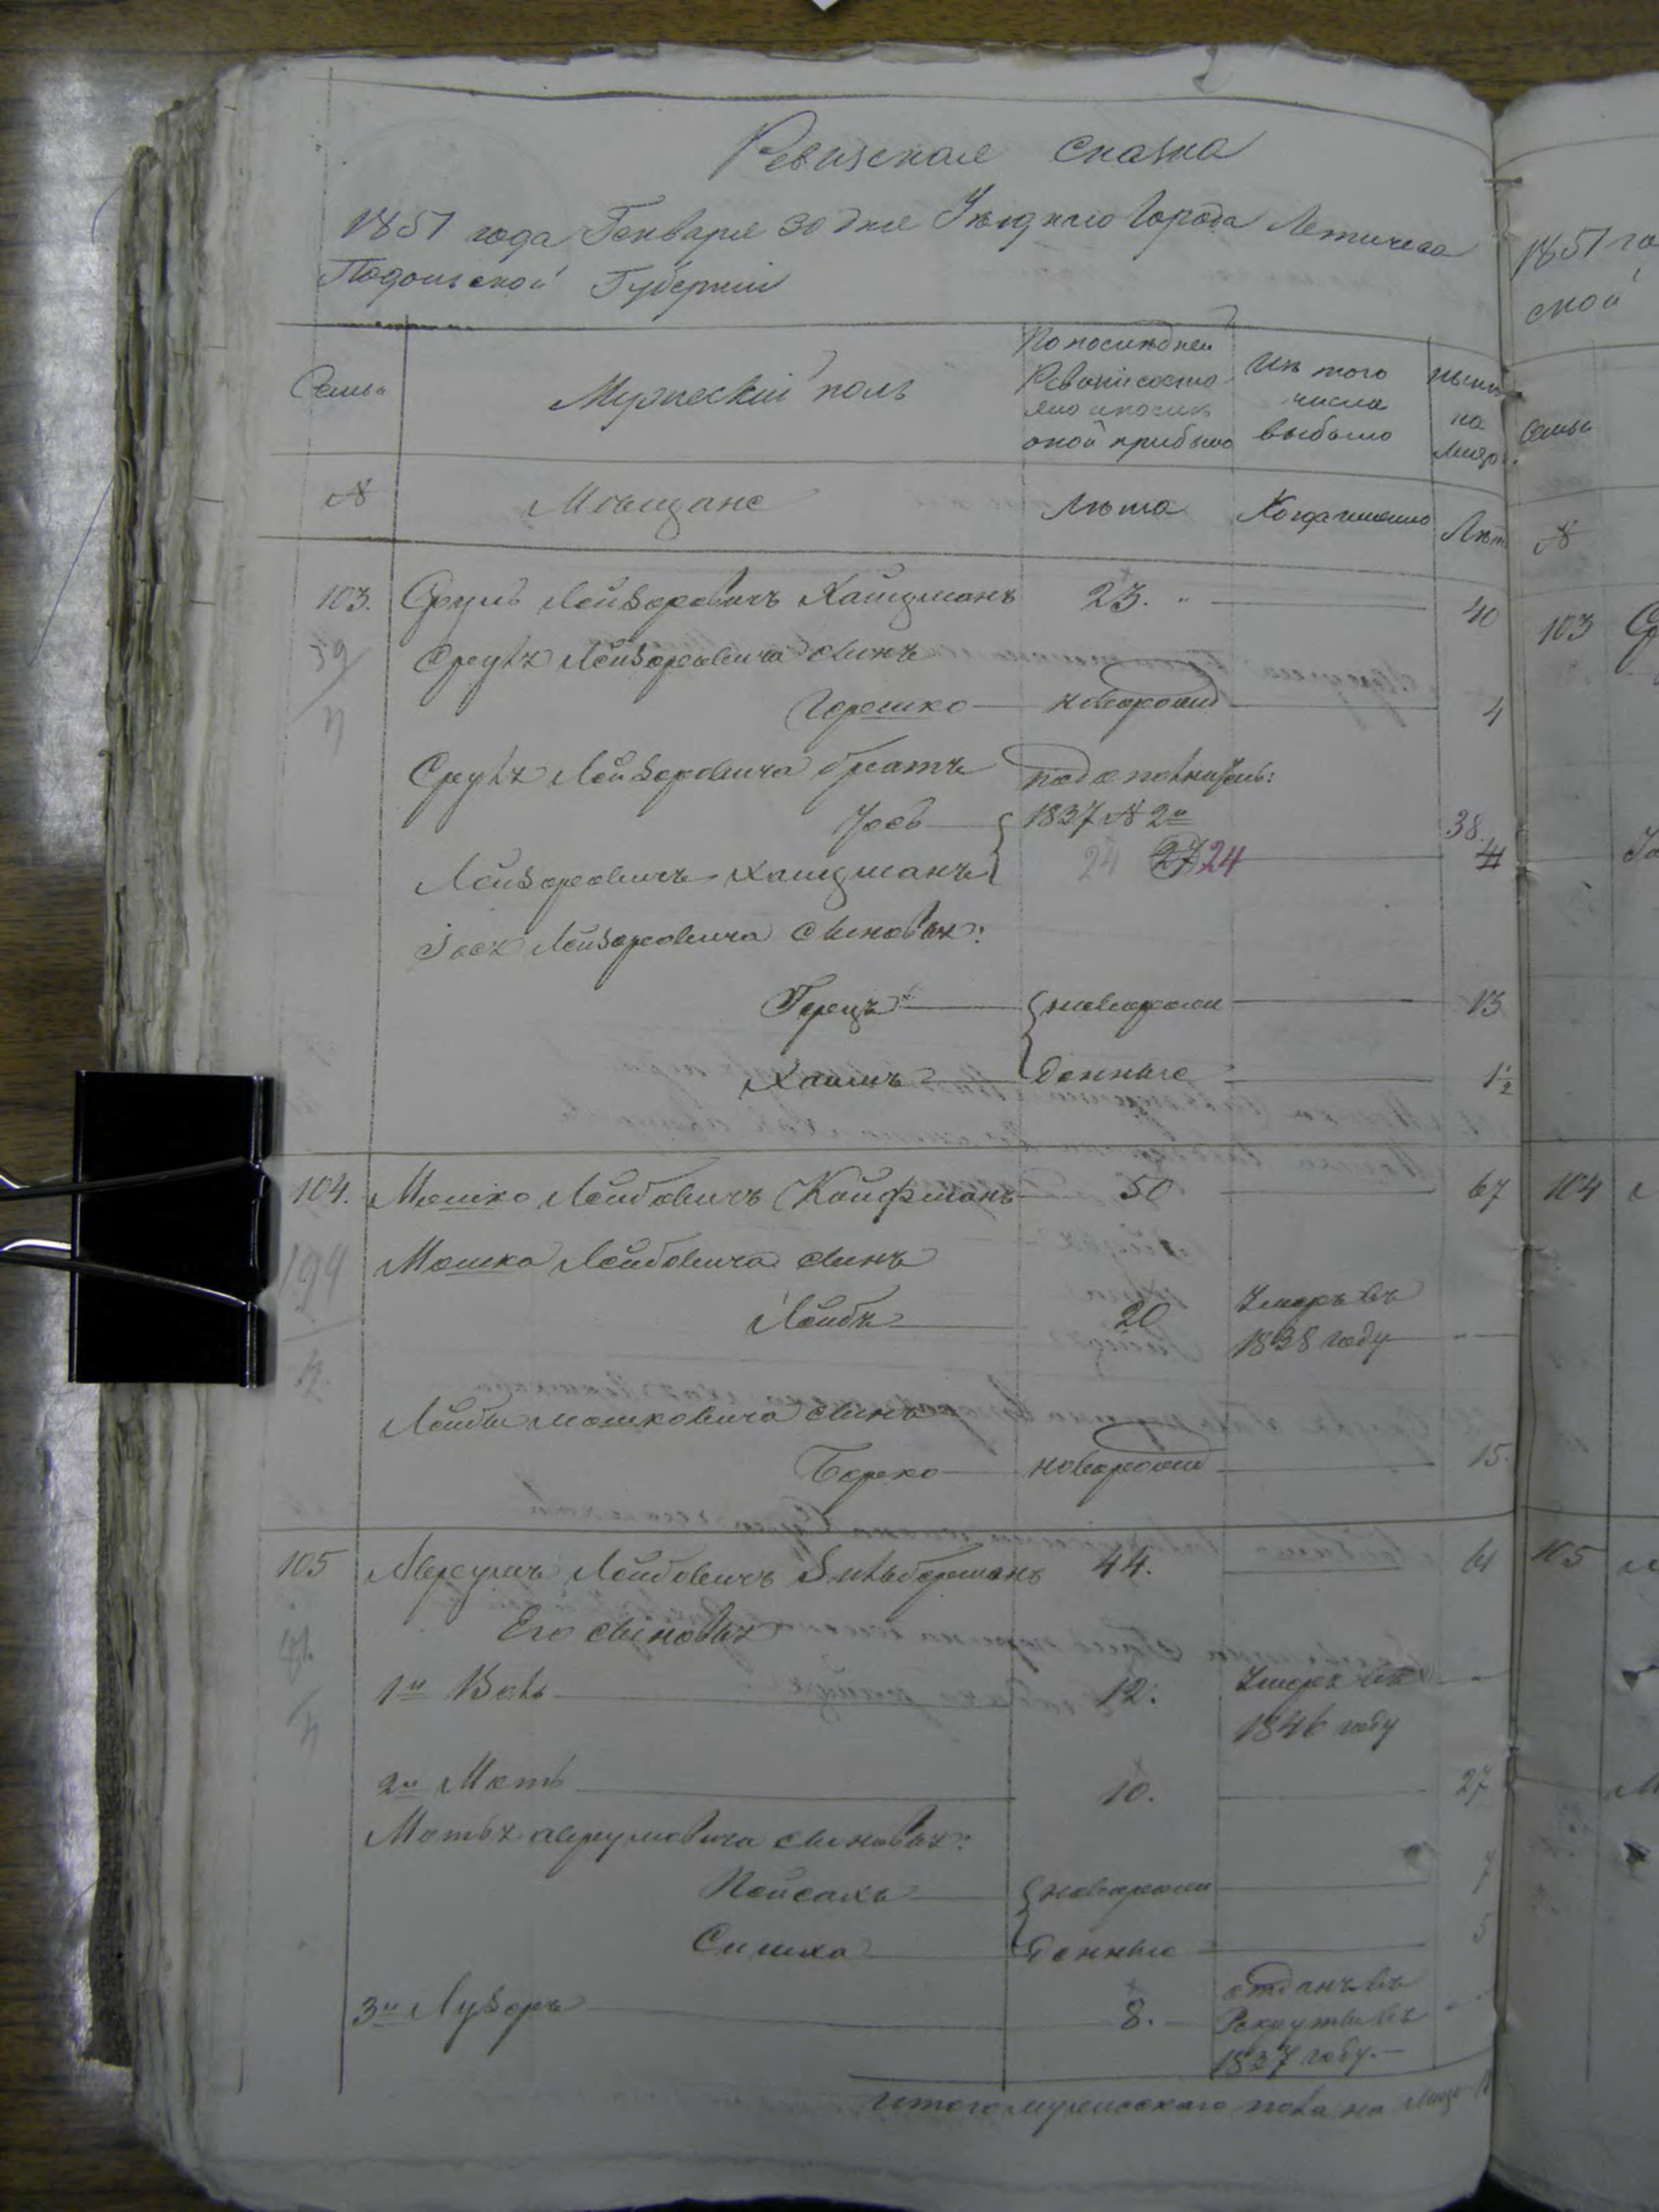 Ревизская сказка
1851 года Генваря 30 дня Уѣзднаго Города Летичева
Подольской Губерніи
Семьи
Мужескій полъ
По послѣдней Ревизіи состояло и послѣ оной прибыло
Изъ того числа выбыло
Нынѣ на лицо
№
Мѣщане
Лѣта
Когда именно
Лѣта
103. Сруль Лейзоровичъ Хайцманъ 23. 40
59/п
Сруля Лейзоровича сынъ
Гершко новорожд 4
Сруля Лейзоровича братъ подополнитель:
Іось 1837 № 2й 38.
Лейзоровичъ Хайцманъ 24 27 24 41
Іося Лейзоровича сыновья:
Герцъ новорож 13
Хаимъ денные 1½
104. Мошко Лейбовичъ Койфманъ 50 67
194/п
Мошка Лейбовича сынъ
Лейба 20 Умеръ въ
1838 году
Лейбы Мошковича сынъ
Берко новорожд 15.
105 Аврумъ Лейбовичъ Зильберманъ 44. 61
Его сыновья
1й Волъ 12. Умеръ въ
1846 году
2й Моть 10. 27
Мотя Аврумовича сыновья:
Пейсахъ новорож 7
Симха денные 5
3й Лузоръ 8. отданъ въ
Рекруты въ
1837 году.
Итого мужескаго пола на лицо
1851 го
ской
Семьи
№
103
104
105